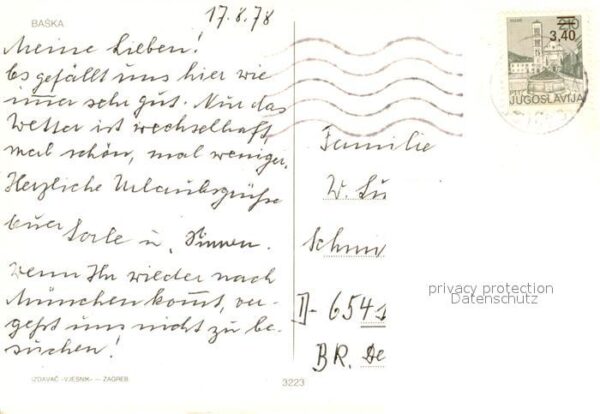 BAŠKA
17.8.78
Meine Lieben!
Es gefällt uns hier wie
immer sehr gut. Nur das
Wetter ist wechselhaft,
mal schön, mal weniger.
Herzliche Urlaubsgrüße
Eure
u.
Wenn Ihr wieder nach
München kommt, ver-
geßt uns nicht zu be-
suchen!
IZDAVAČ »VJESNIK« — ZAGREB
3223
3,40
JUGOSLAVIJA
Familie
W. Lu
Schm
privacy protection
Datenschutz
D-654
BR. De